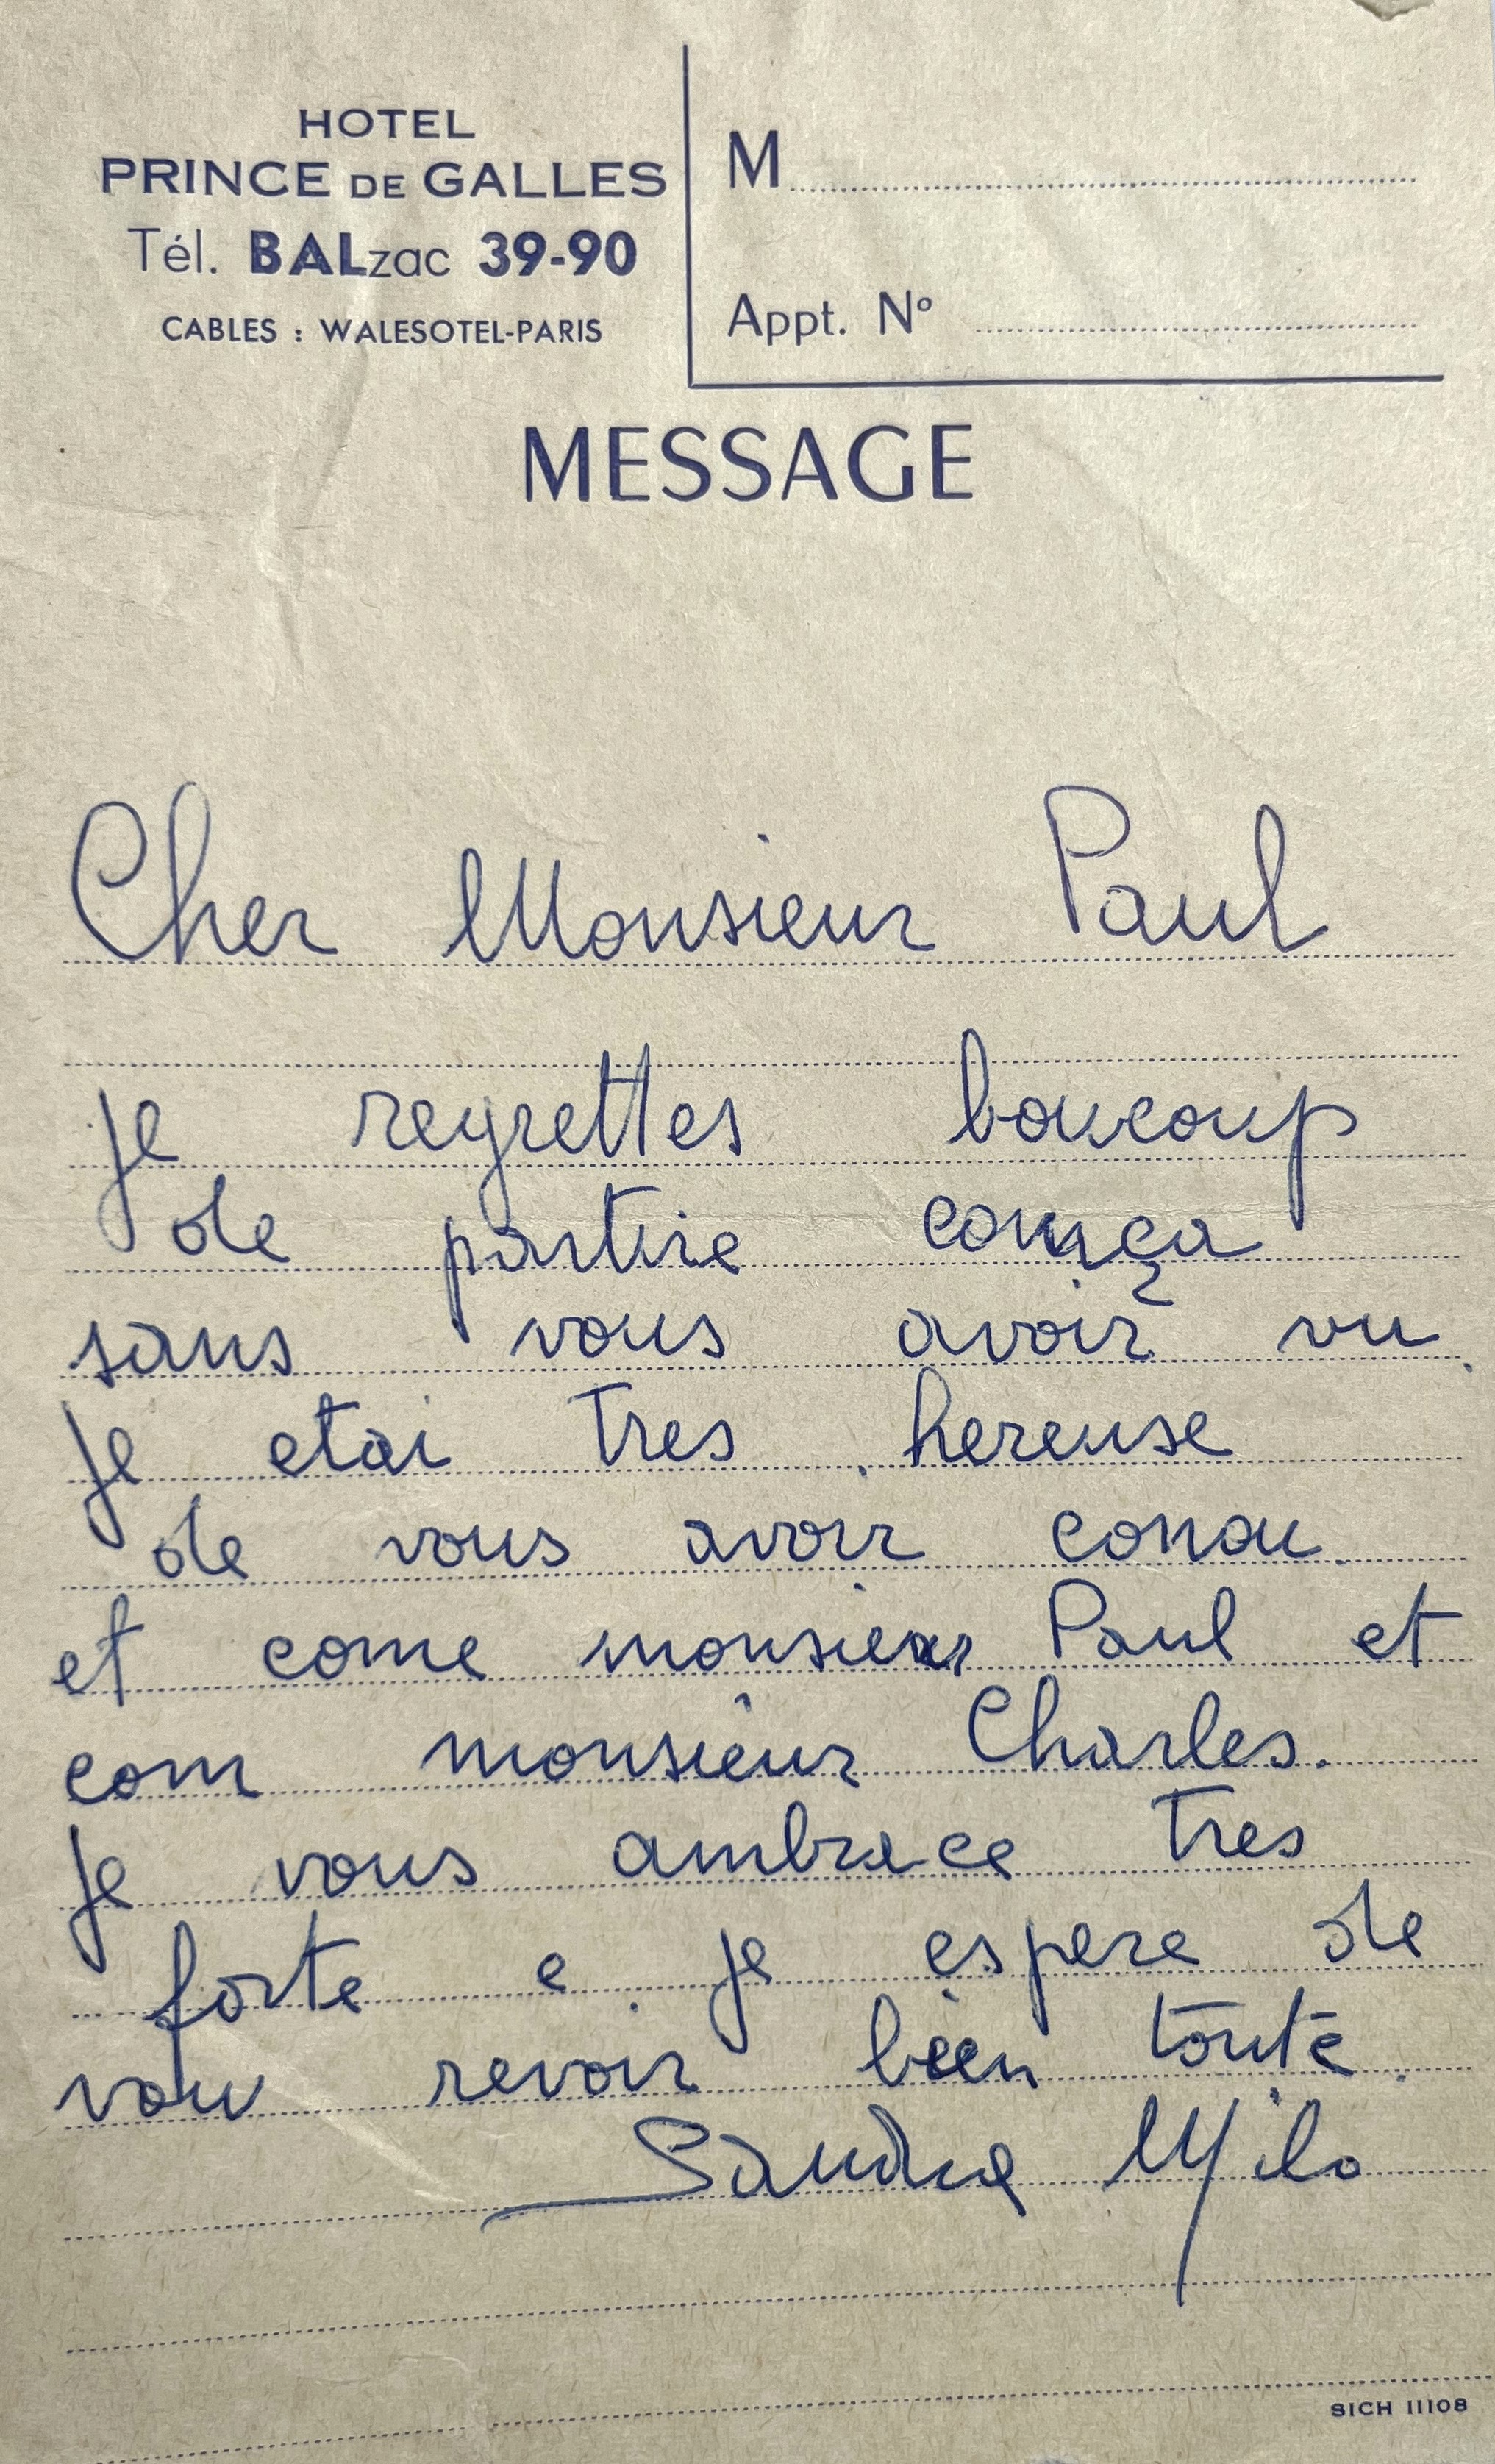 HOTEL
PRINCE DE GALLES
Tél. BALzac 39-90
CABLES : WALESOTEL-PARIS
M
Appt. Nº
MESSAGE
Cher Monsieur Paul
je regrettes boucoup
de partire comça
sans vous avoir vu.
je etai tres hereuse
de vous avoir conou.
et come monsieur Paul et
com monsieur Charles.
je vous ambrace tres
forte e je espere de
vous revoir bien toute.
Sandra Milo
SICH 11108